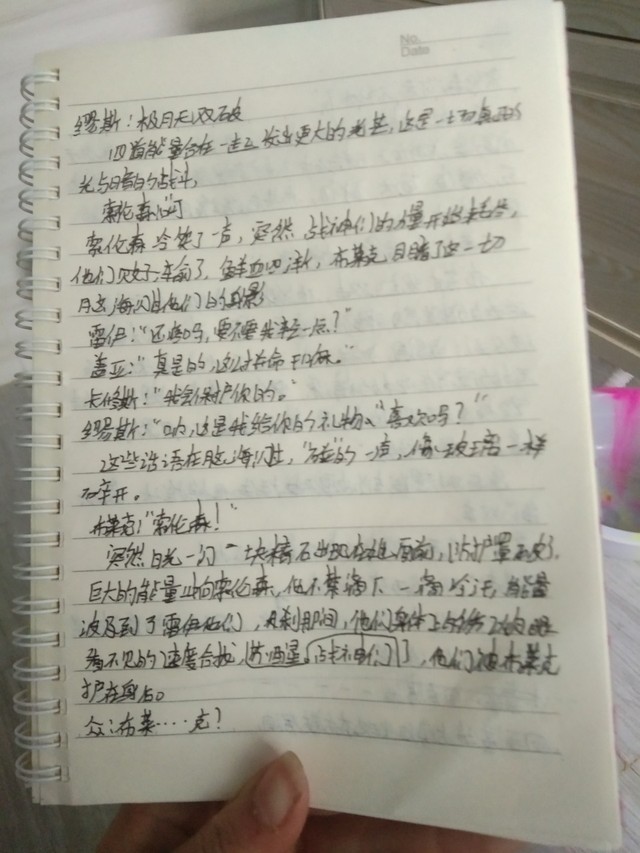 No.
Date
缪斯：极月无双破
四道能量合在一起发出更大的光芒，这是一
光与暗的战斗，
索伦森心
索伦森冷笑了一声，突然战神们的力量开始
他们 输了，鲜血四溅，布莱克目睹了这一切
脑海 他们的身影
雷伊：“还 吗，要不要我轻一点？”
盖亚：“真是的，这么拼命干嘛。”
卡修斯：“我会保护你的。”
缪斯：“呐，这是我给你的礼物，“喜欢吗？”
这些话语在脑海 ，“碰”的一声，像玻璃一样
碎开。
布莱克：“索伦森！”
突然白光一闪一块棱石出现在他面前，防护罩
巨大的能量 向索伦森，他不禁滴下一滴冷汗，能量
波及到了雷伊他们， 刹那间，他们身体上
看不见的速度合拢， 战神们 ，他们被布莱克
护在身后。
众：布莱····克？